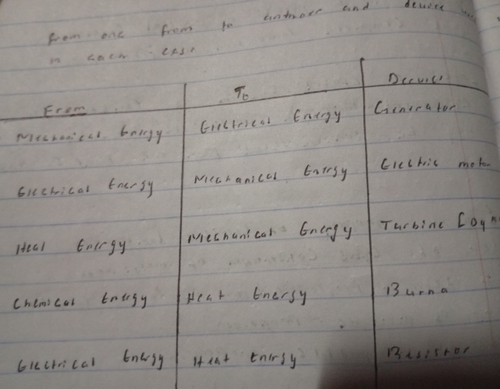 from one from to another and device
in each case
From To Device
Mechanical Energy Electrical Energy Generator
Electrical Energy Mechanical Energy Electric motor
Heat Energy Mechanical Energy Turbine
Chemical Energy Heat Energy
Electrical Energy Heat Energy Resistor